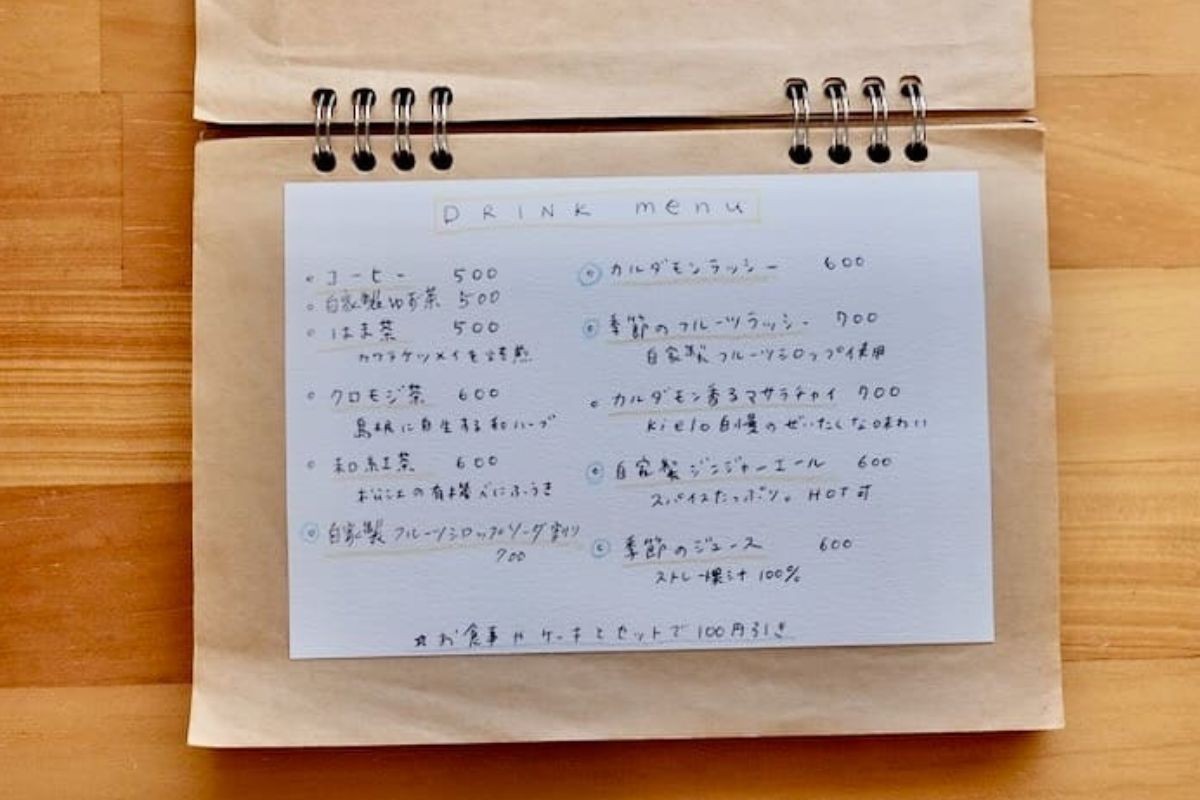 DRINK menu
コーヒー 500
自家製ゆず茶 500
はま茶 500
カワラケツメイを焙煎
クロモジ茶 600
島根に自生する和ハーブ
和紅茶 600
松江の有機べにふうき
自家製フルーツシロップソーダ割り
700
カルダモンラッシー 600
季節のフルーツラッシー 700
自家製フルーツシロップ使用
カルダモン香るマサラチャイ 700
kielo自慢のぜいたくな味わい
自家製ジンジャーエール 600
スパイスたっぷり。HOT可
季節のジュース 600
ストレート果汁 100%
☆お食事やケーキとセットで100円引き